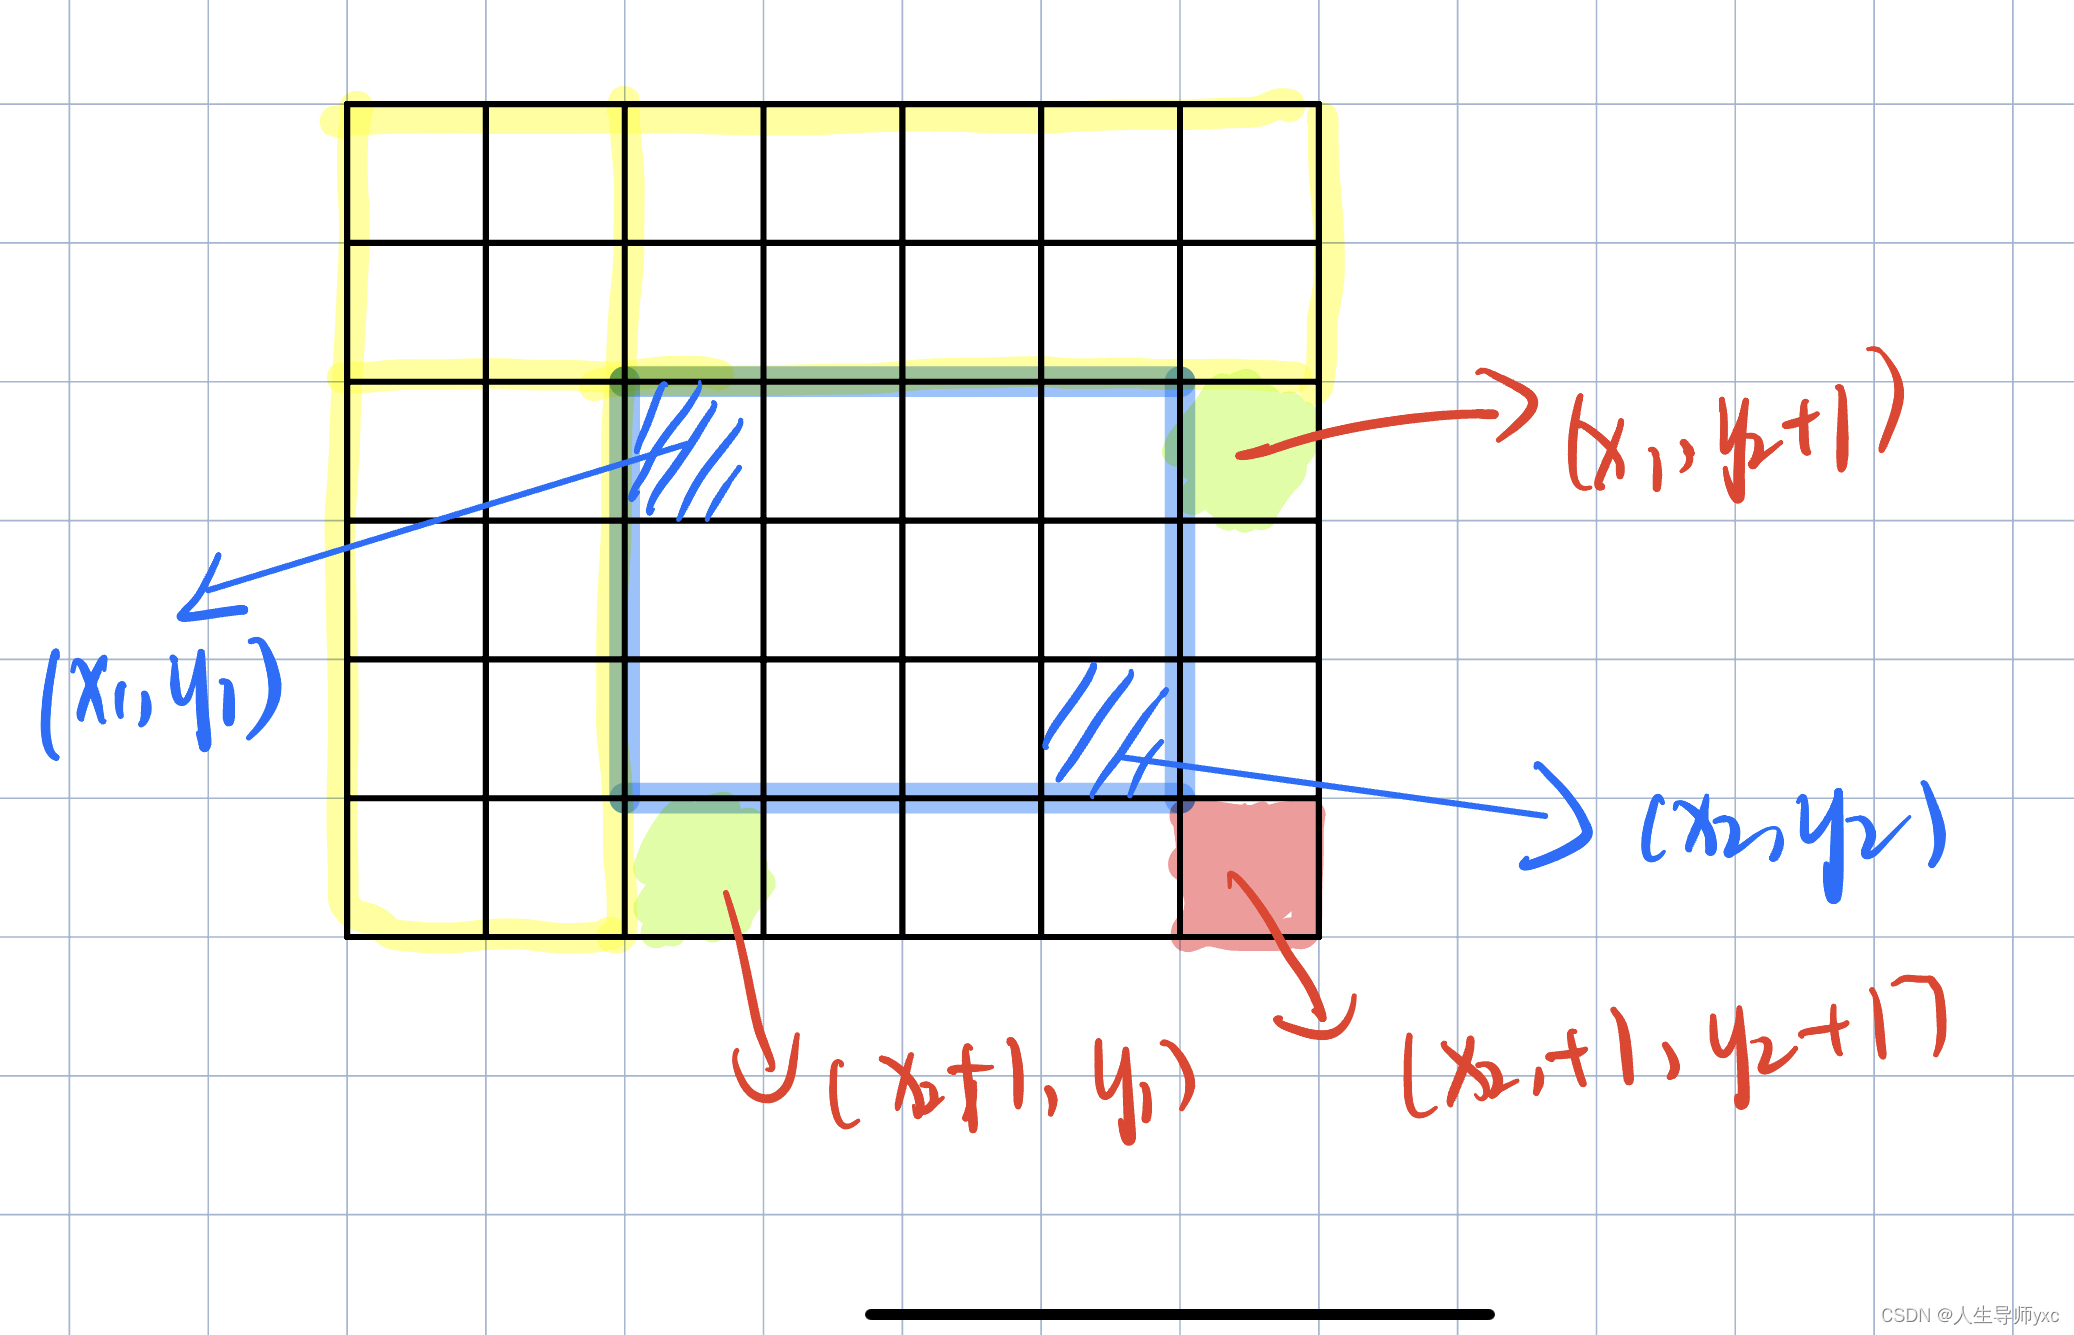 (x₁, y₂+1)
(x₁, y₁)
(x₂, y₂)
(x₂+1, y₁)
(x₂,+1, y₂+1)
CSDN @人生导师yxc